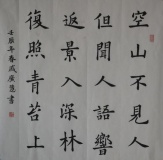 空山不見人
但聞人語響
返景入深林
復照青苔上
壬辰年春
書